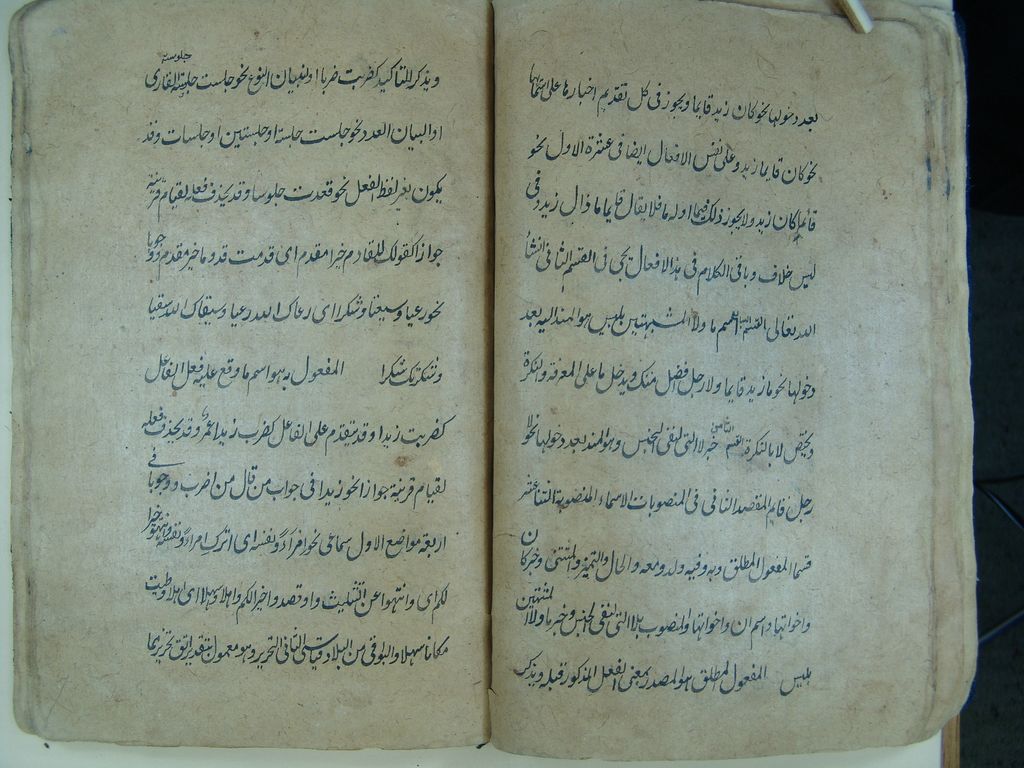 بعد دخولها نحو كان زيد قايما ويجوز فى كل تقديم اخبارها على اسمائها
نحو كان قايما زيد وعلى نفس الافعال ايضا فى عشرة الاول نحو
قائما كان زيد ولا يجوز ذلك فيما اوله ما فلا يقال قايما ما ذال زيد وفى
ليس خلاف وباقى الكلام فى هذا الافعال يجى فى القسم الثانى انشأ
الله تعالى القسم اسم ما ولا المشبهتين بليس هو المسند اليه بعد
دخولها نحو ما زيد قايما ولا رجل افضل منك ويدخل ما على المعرفة والنكرة
ويختص لا بالنكرة القسم الثامن خبر لا التى لنفى الجنس وهو المسند بعد دخولها نحو لا
رجل قايم المقصد الثانى فى المنصوبات الاسماء المنصوبة اثنا عشر
قسما المفعول المطلق وبه وفيه وله ومعه والحال والتميز والمستثنى وخبر كان
واخواتها واسم ان واخواتها والمنصوب بلا التى لنفى الجنس وخبر ما ولا المشبهتين
بليس المفعول المطلق هو المصدر بمعنى الفعل المذكور قبله ويذكر
ويذكر للتاكيد كضربت ضربا او لبيان النوع نحو جلست جلسة القارى
او لبيان العدد نحو جلست جلسة او جلستين او جلسات وقد
يكون بغير لفظ الفعل نحو قعدت جلوسا وقد يحذف فعله لقيام قرينة
جوازا كقولك للقادم خير مقدم اى قدمت قدوما خير مقدم ووجوبا
نحو رعيا وسقيا وشكرا اى رعاك الله رعيا وسقاك الله سقيا
وشكرتك شكرا المفعول به هو اسم ما وقع عليه فعل الفاعل
كضربت زيدا وقد يتقدم على الفاعل كضرب زيدا عمرو وقد يحذف فعله
لقيام قرينة جوازا نحو زيدا فى جواب من قال من اضرب ووجوبا فى
اربعة مواضع الاول سماعى نحو امرأ ونفسه اى اترك امرأ ونفسه وانتهوا خيرا
لكم اى وانتهوا عن التثليث واوقصدوا خيرا لكم واهلا وسهلا اى اهلا وطيت
مكانا سهلا والبوقى من البلاد قياسى الثانى التحرير وهو معمول بتقدير اتق تحذيرا مما